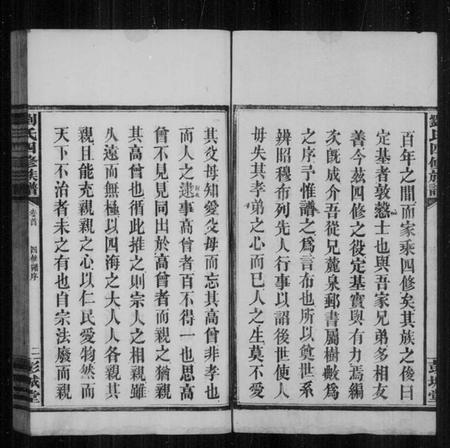 劉氏四修族譜
彭城堂
百年之間而家乘四修矣其族之後曰
定基者敦慤士也與吾家兄弟多相友
善今茲四修之役定基實與有力焉編
次既成介吾從兄麓泉郵書屬樹敷爲
之序予惟譜之爲言布也所以奠世系
辨昭穆布列先人行事以詔後世使人
毋失其孝弟之心而已人之生莫不愛
其父母知愛父母而忘其高曾非孝也
而人之逮事高曾者百不得一也思高
曾不見見同出於高曾者而親之猶視
其高曾也循此推之則宗人之相親雖
久遠而無極以四海之大人人各親其
親且能充親親之心以仁民愛物然而
天下不治者未之有也自宗法廢而親
劉氏四修族譜
卷首
四修譜序
二
彭城堂